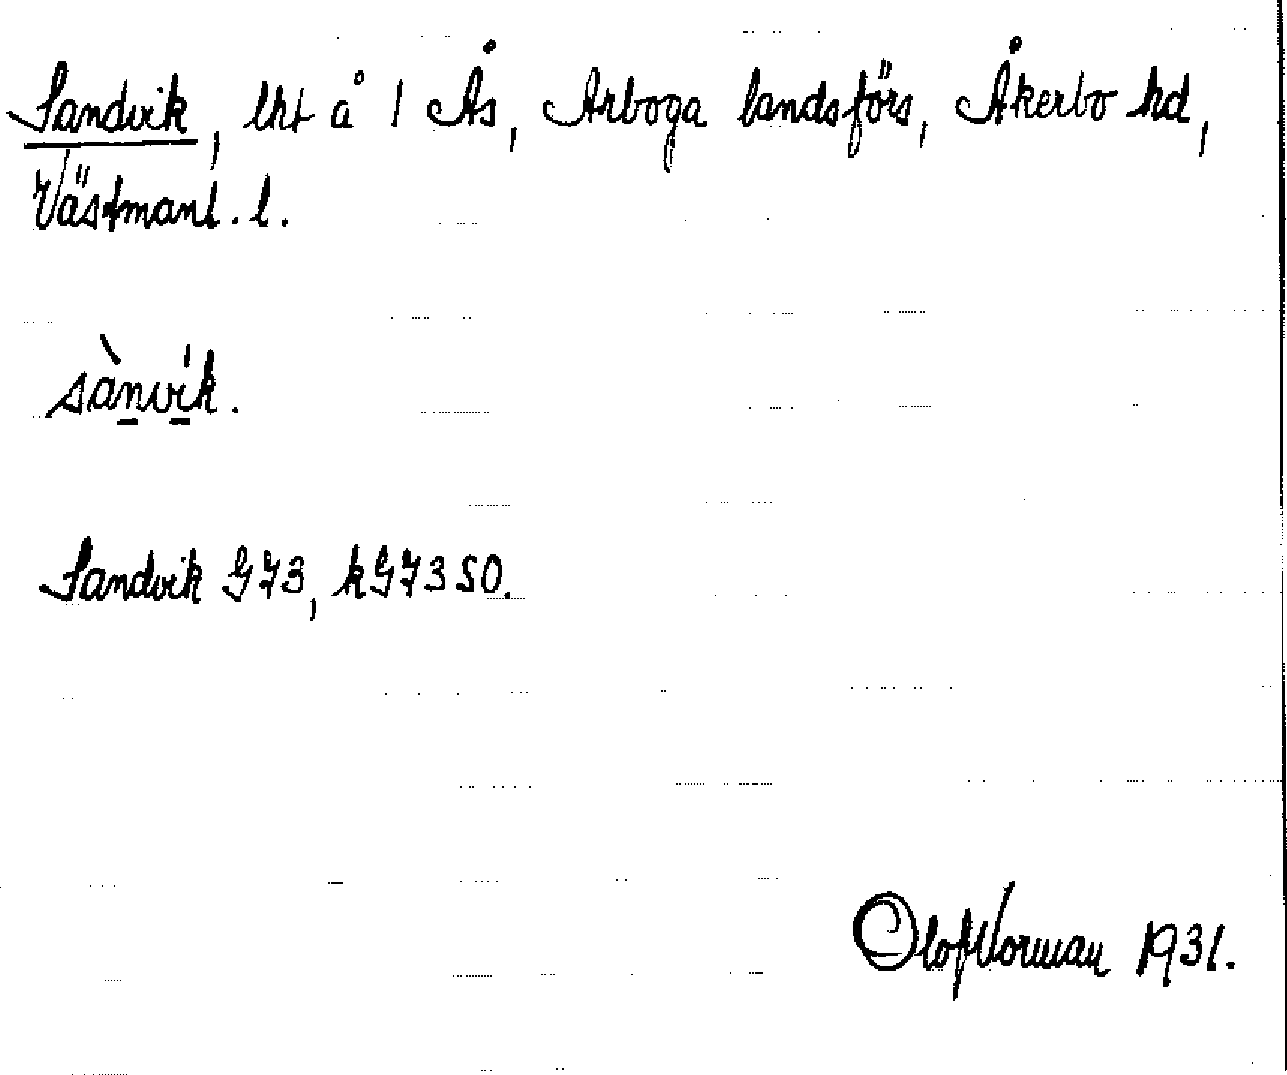 Sandvik, lht å 1 Ås, Arboga landsförs, Åkerbo hd,
Västmanl. l.
sànvik.
Sandvik G73, kG73 SO.
Olof Norman 1931.